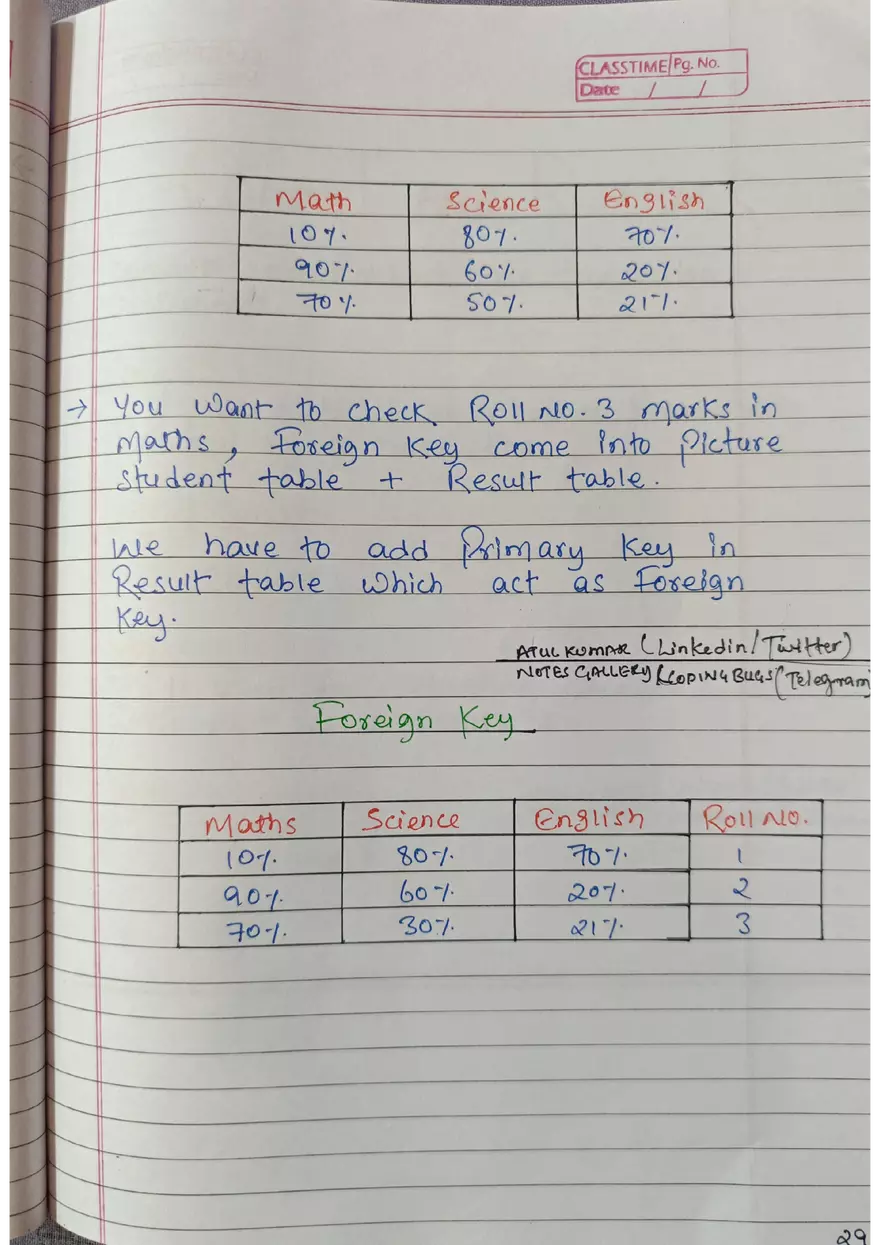 CLASSTIME Pg. No.
Date / /
Math Science English
10% 80% 70%
90% 60% 20%
70% 50% 21%
→ You want to check Roll No. 3 marks in
Maths, Foreign Key come into Picture
Student table + Result table.
We have to add Primary Key in
Result table which act as Foreign
Key.
ATUL KUMAR (Linkedin/Twitter)
NOTES GALLERY & CODING BUGS (Telegram)
Foreign Key
Maths Science English Roll No.
10% 80% 70% 1
90% 60% 20% 2
70% 30% 21% 3
29